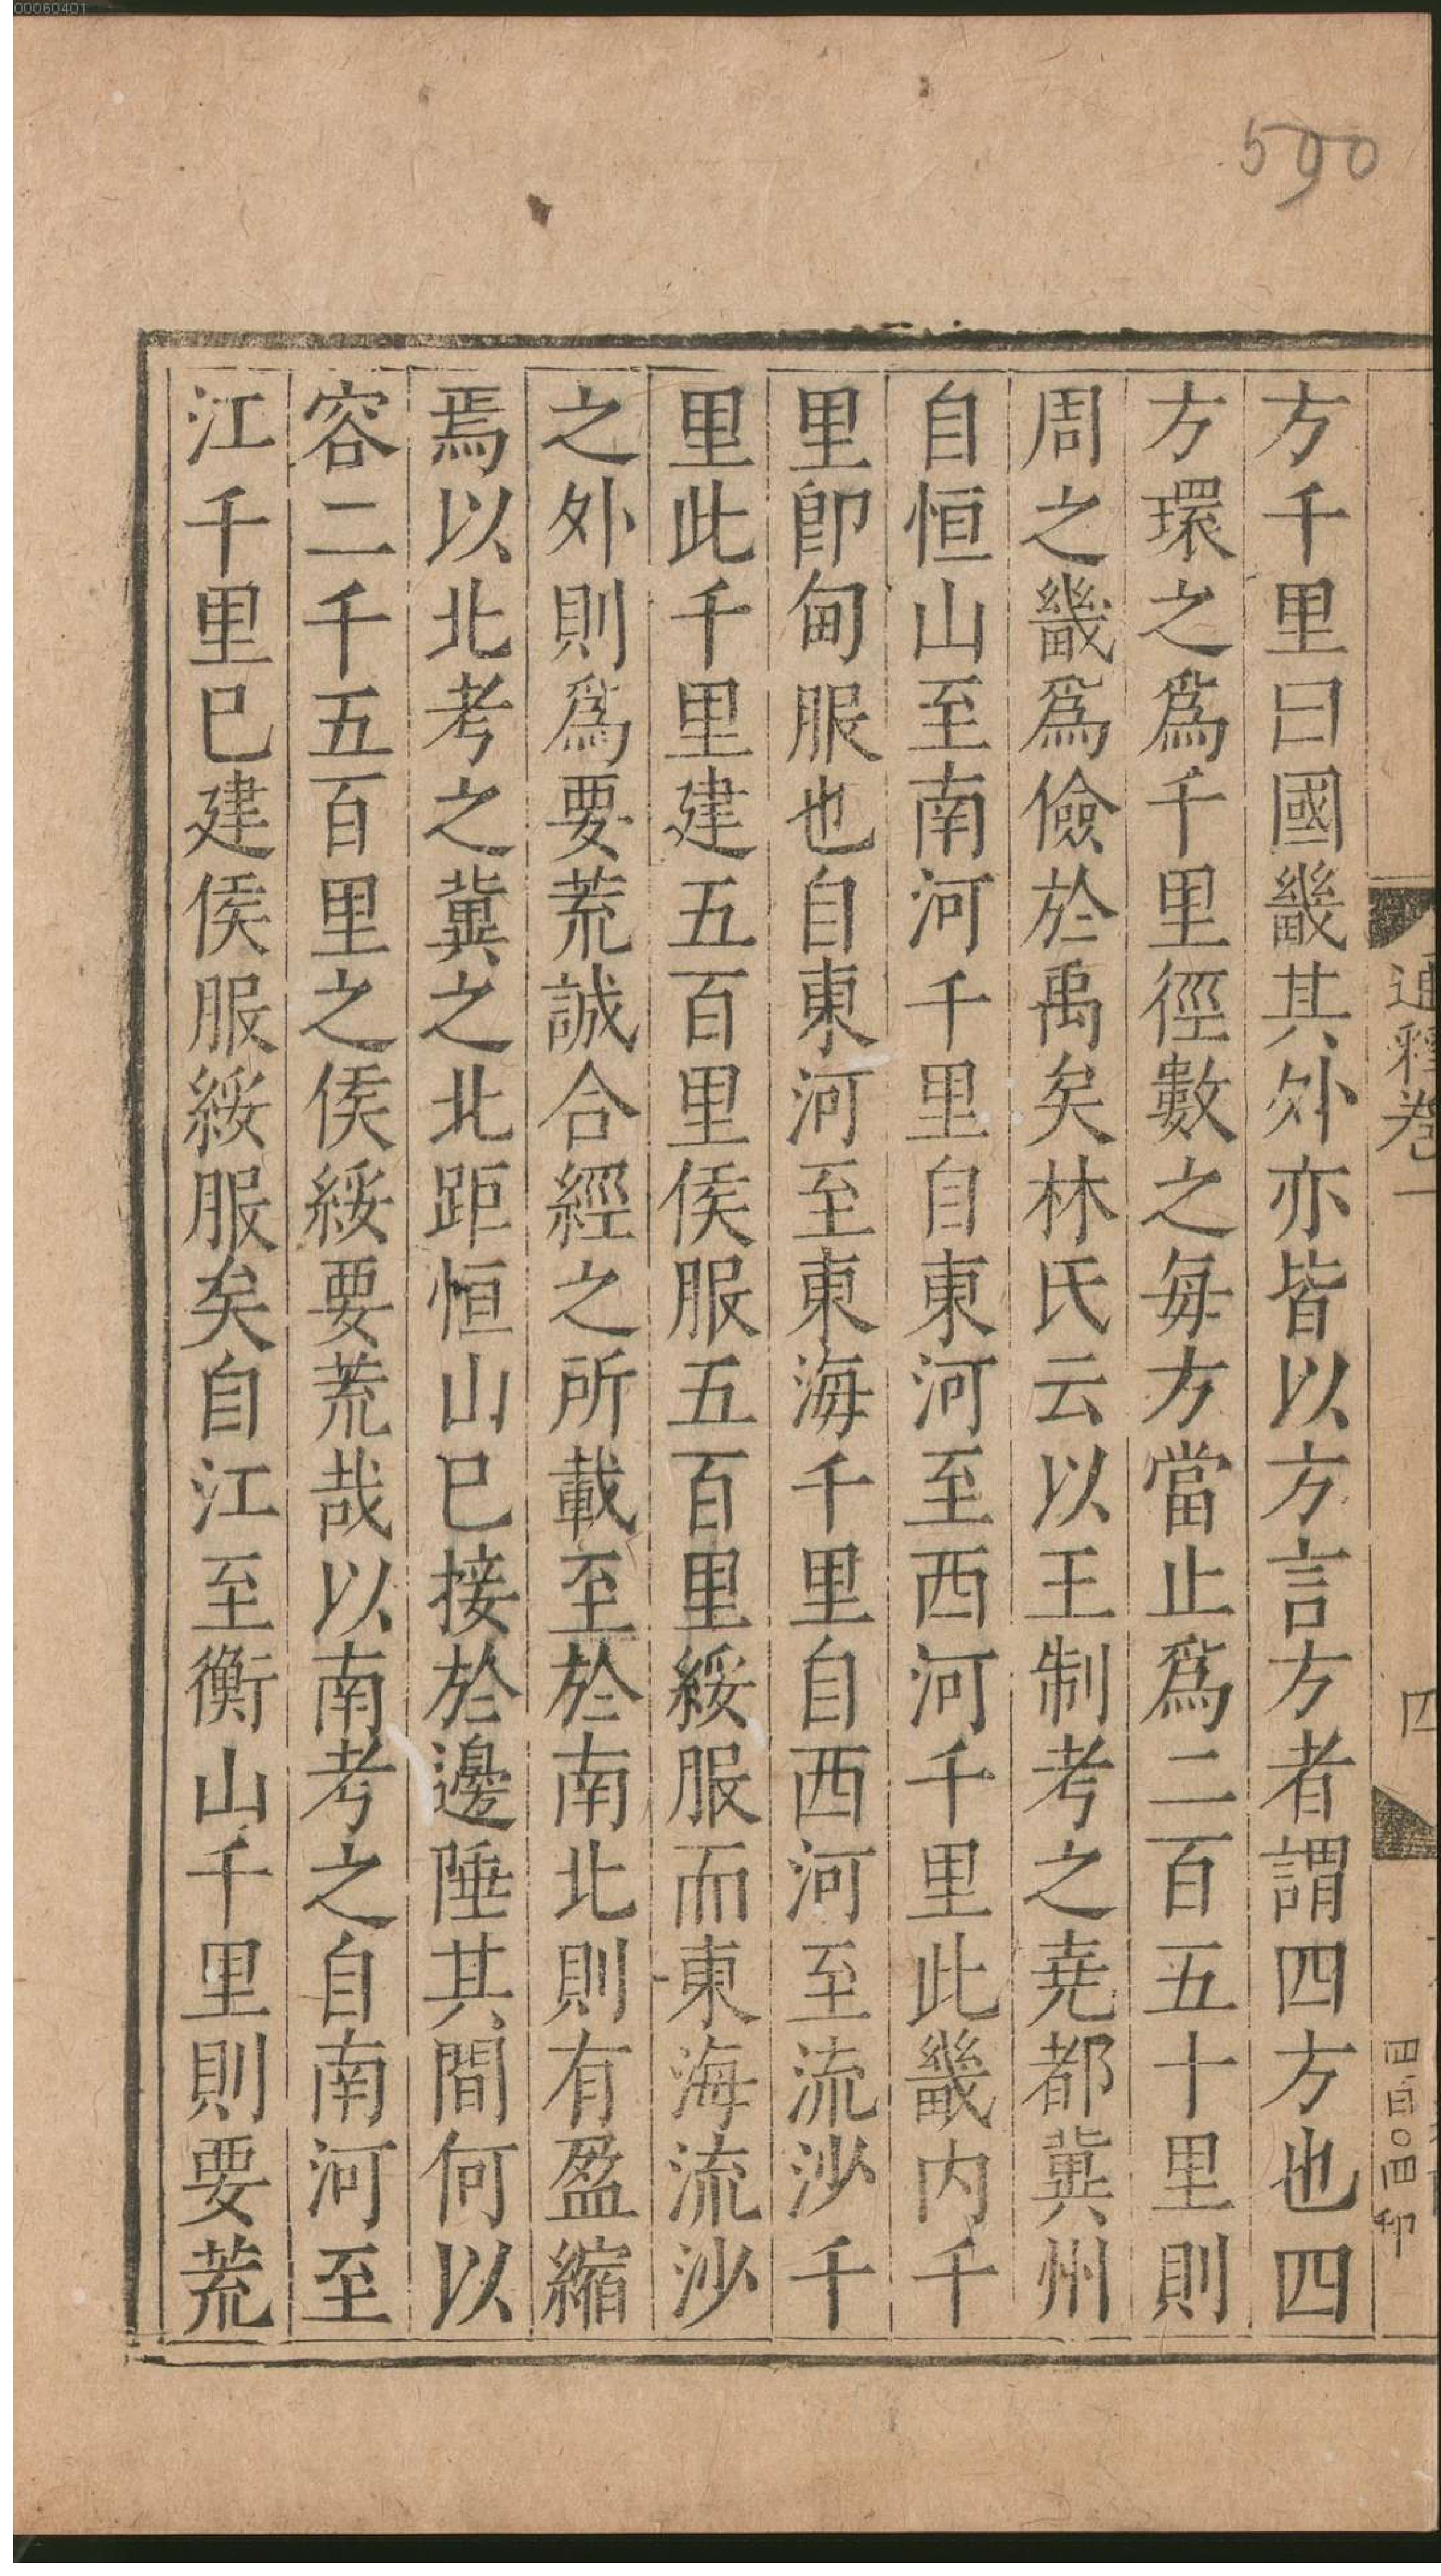 00060401
590
方千里曰國畿其外亦皆以方言方者謂四方也四
方環之爲千里徑數之每方當止爲二百五十里則
周之畿爲儉於禹矣林氏云以王制考之堯都冀州
自恒山至南河千里自東河至西河千里此畿内千
里卽甸服也自東河至東海千里自西河至流沙千
里此千里建五百里侯服五百里綏服而東海流沙
之外則爲要荒誠合經之所載至於南北則有盈縮
焉以北考之冀之北距恒山已接於邊陲其間何以
容二千五百里之侯綏要荒哉以南考之自南河至
江千里已建侯服綏服矣自江至衡山千里則要荒
通釋卷一
四